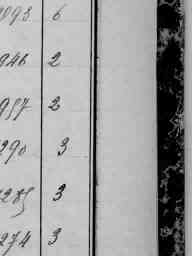 093 6
946 2
957 2
290 3
285 3
274 3